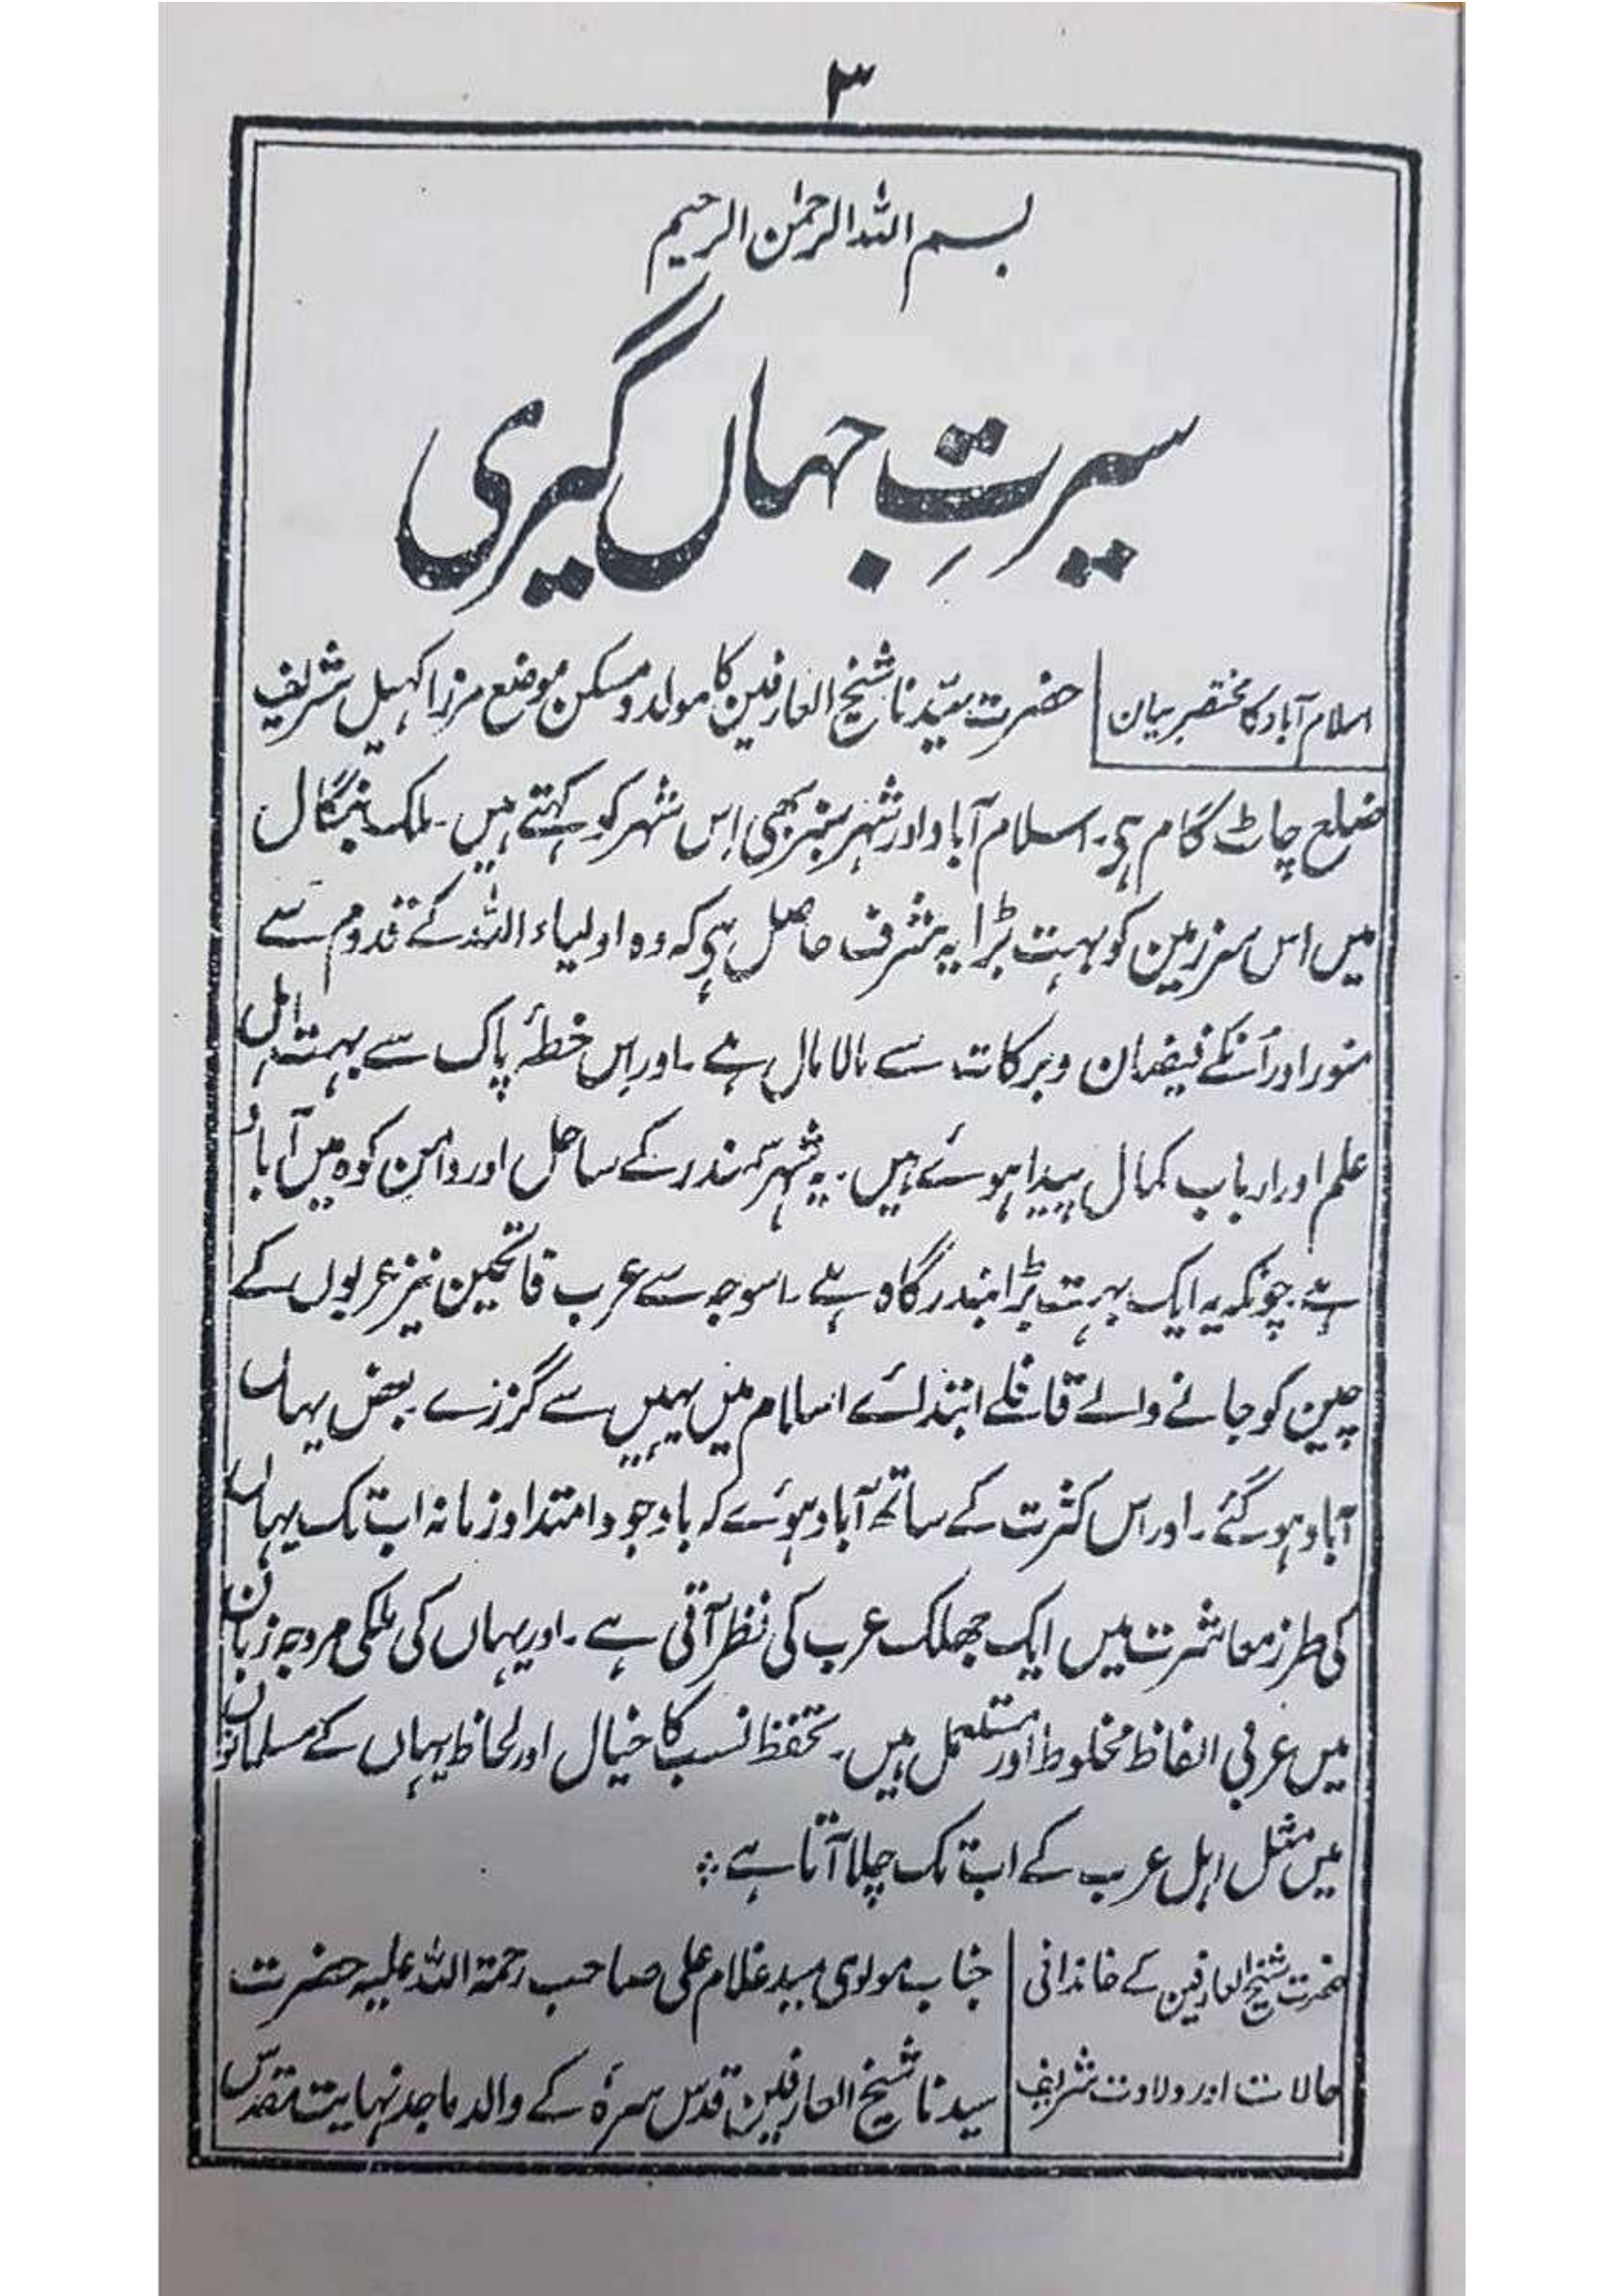 ۳
بسم اللہ الرحمٰن الرحیم
سیرتِ جہاں گیری
اسلام آباد کا مختصر بیان
حضرت سیّدنا شیخ العارفین کا مولد و مسکن موضع مرزا کھیل شریف
ضلع چاٹ گام ہی۔ اسلام آباد اور شہر سبز بھی اِس شہر کو کہتے ہیں۔ ملک بنگال
میں اس سرزمین کو بہت بڑا یہ شرف حاصل ہی کہ وہ اولیاء اللہ کے قدوم سے
منور اور اُنکے فیضان وبرکات سے مالا مال ہے۔ اور اِس خطۂ پاک سے بہت اہل
علم اور ارباب کمال پیدا ہوئے ہیں۔ یہ شہر سمندر کے ساحل اور دامن کوہ میں آباد
ہے۔ چونکہ یہ ایک بہت بڑا بندرگاہ ہے۔ اسوجہ سے عرب فاتحین نیز عربوں کے
چین کو جانے والے قافلے ابتدائے اسلام میں یہیں سے گزرے۔ بعض یہاں
آباد ہو گئے۔ اور اس کثرت کے ساتھ آباد ہوئے کہ باوجود امتداد زمانہ اب تک یہاں
کی طرز معاشرت میں ایک جھلک عرب کی نظر آتی ہے۔ اور یہاں کی ملکی مروجہ زبان
میں عربی الفاظ مخلوط اور مستعمل ہیں۔ تحفظ نسب کا خیال اور لحاظ یہاں کے مسلمانوں
میں مثل اہل عرب کے اب تک چلا آتا ہے ؞
حضرت شیخ العارفین کے خاندانی
حالات اور ولادت شریف
جناب مولوی سید غلام علی صاحب رحمۃ اللہ علیہ حضرت
سیدنا شیخ العارفین قدس سرہٗ کے والد ماجد نہایت مقدس